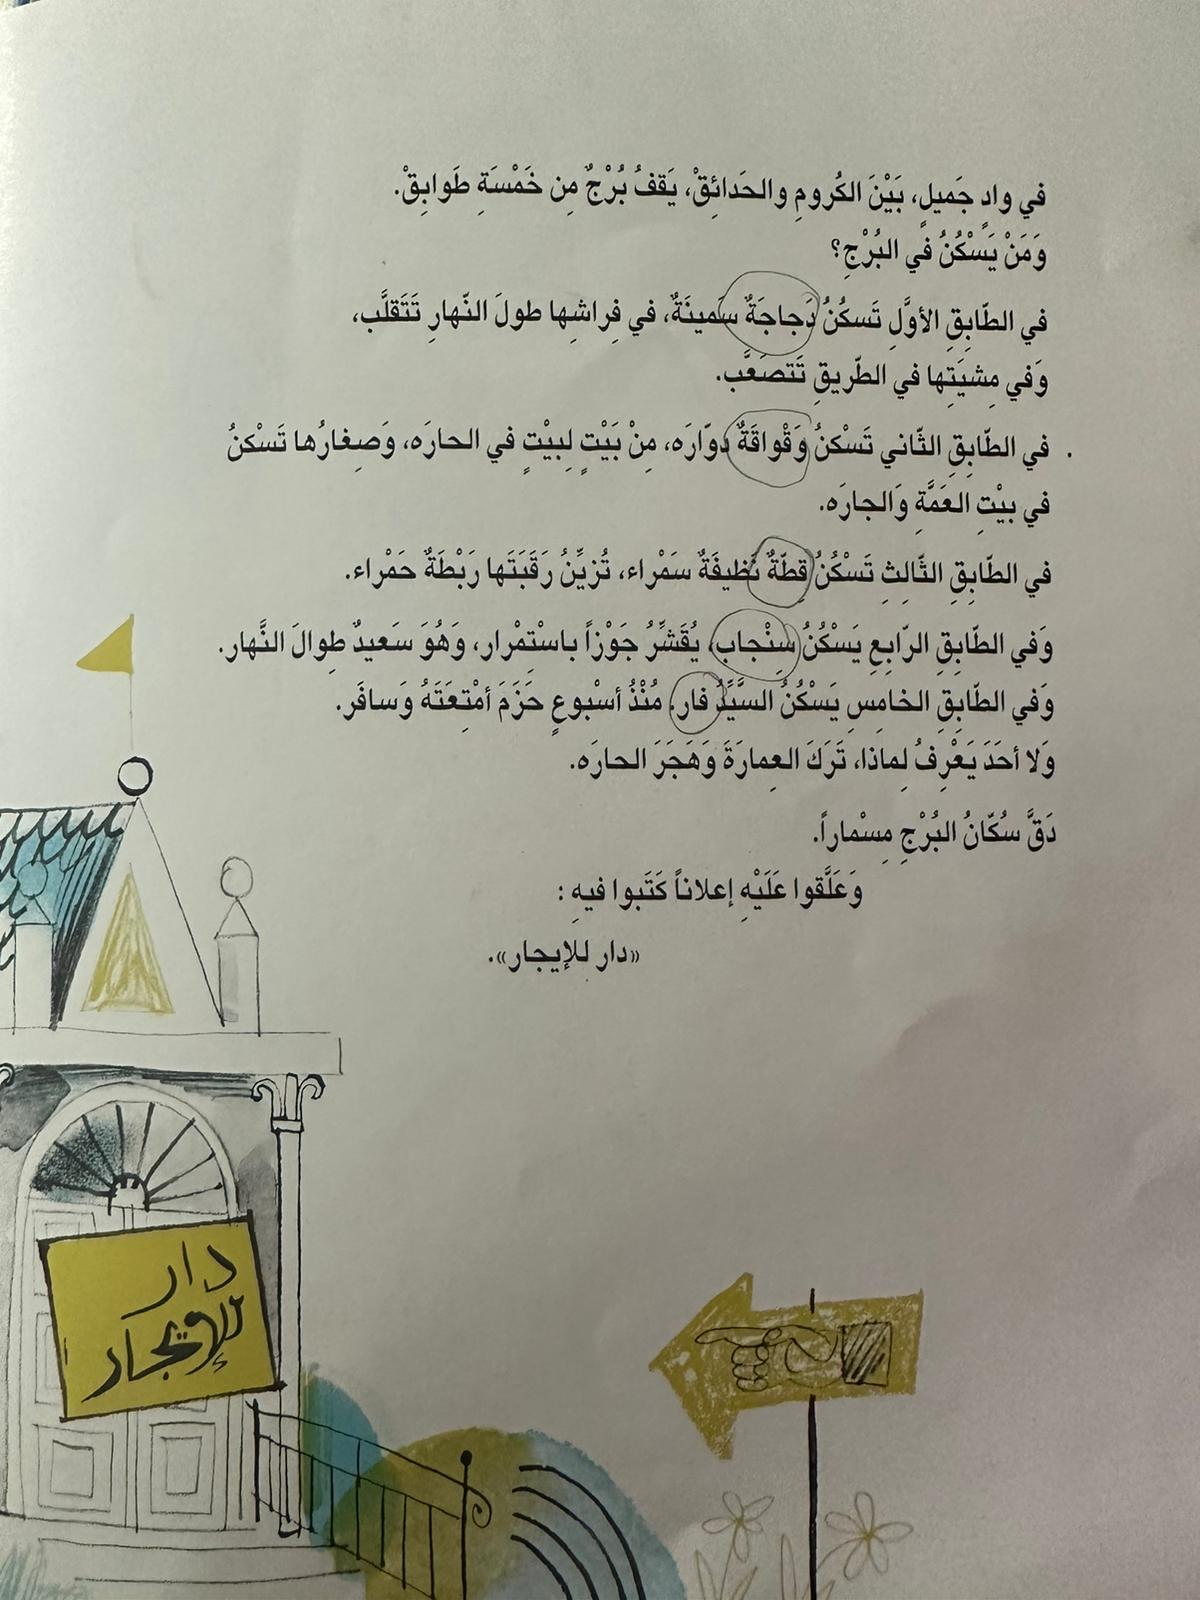 في وادٍ جَميلٍ، بَيْنَ الكُرومِ والحَدائِقْ، يَقفُ بُرْجٌ مِن خَمْسَةِ طَوابِقْ.
وَمَنْ يَسْكُنُ في البُرْجِ؟
في الطّابِقِ الأوَّلِ تَسكُنُ دَجاجَةٌ سَمينَةٌ، في فِراشِها طولَ النّهارِ تَتَقلَّب،
وَفي مِشيَتِها في الطّريقِ تَتصَعَّب.
في الطّابِقِ الثّاني تَسْكنُ وَقْواقَةٌ دوّارَه، مِنْ بَيْتٍ لِبيْتٍ في الحارَه، وَصِغارُها تَسْكنُ
في بيْتِ العَمَّةِ وَالجارَه.
في الطّابِقِ الثّالِثِ تَسْكُنُ قِطّةٌ نَظيفَةٌ سَمْراء، تُزيِّنُ رَقَبَتَها رَبْطَةٌ حَمْراء.
وَفي الطّابِقِ الرّابِعِ يَسْكُنُ سِنْجاب، يُقَشِّرُ جَوْزاً باستِمْرار، وَهُوَ سَعيدٌ طِوالَ النَّهار.
وَفي الطّابِقِ الخامِسِ يَسْكُنُ السيِّدُ فار، مُنْذُ أسْبوعٍ حَزَمَ أمْتِعَتَهُ وَسافَر.
وَلا أحَدَ يَعْرِفُ لِماذا، تَرَكَ العِمارَةَ وَهَجَرَ الحارَه.
دَقَّ سُكّانُ البُرْجِ مِسْماراً.
وَعَلَّقوا عَلَيْهِ إعلاناً كَتَبوا فيهِ :
«دار لِلإيجار».
دار
للإيجار